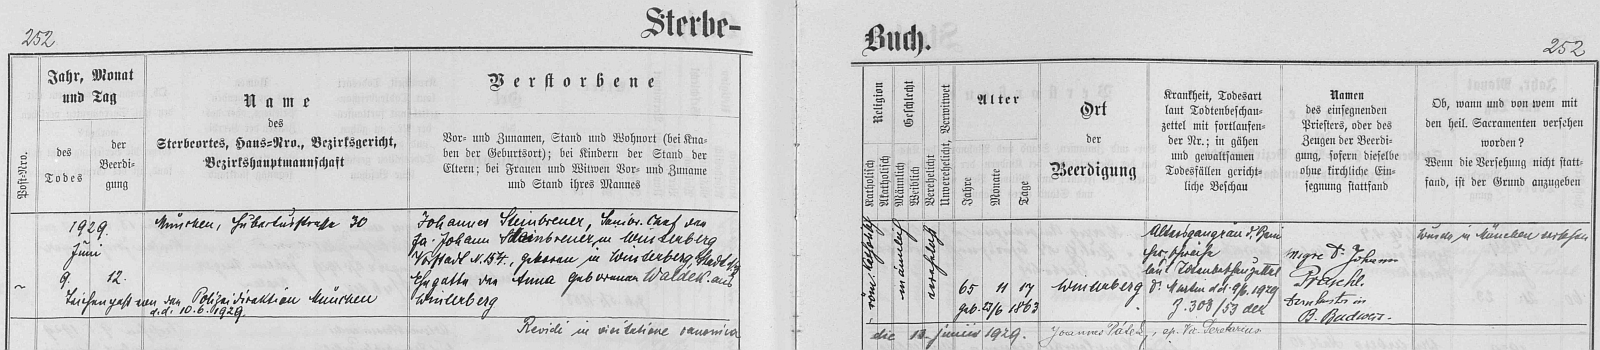 252
Sterbe-
Buch.
252
Post-Nro.
Jahr, Monat
und Tag
des
Todes
der
Beerdi-
gung
Name
des
Sterbeortes, Haus-Nro., Bezirksgericht,
Bezirkshauptmannschaft
Verstorbene
Vor- und Zunamen, Stand und Wohnort (bei Kna-
ben der Geburtsort); bei Kindern der Stand der
Eltern; bei Frauen und Witwen Vor- und Zuname
und Stand ihres Mannes
Religion
Katholisch
Akatholisch
Geschlecht
Männlich
Weiblich
Verehelicht
Unverehelicht, Verwitwet
Alter
Jahre
Monate
Tage
Ort
der
Beerdigung
Krankheit, Todesart
laut Todtenbeschau-
zettel mit fortlaufen-
der Nr.; in gähen
und gewaltsamen
Todesfällen gericht-
liche Beschau
Namen
des einsegnenden
Priesters, oder des
Zeugen der Beerdi-
gung, sofern dieselbe
ohne kirchliche Ein-
segnung stattfand
Ob, wann und von wem mit
den heil. Sacramenten versehen
worden?
Wenn die Versehung nicht statt-
fand, ist der Grund anzugeben
1929.
Juni
9. 12.
München, Hubertusstrasse 30
Leichenpass von der Polizeidirektion München
d.d. 10.6.1929.
Johannes Steinbrener, Senior-Chef der
Fa. Johann Steinbrener in Winterberg
Vorstadt N. 154, geboren in Winterberg Stadt
Ehegatte der Anna geborenen Waldek aus
Winterberg
römkatholisch
männlich
verehelicht
65 11 17
geb. 23/6 1863
Winterberg
Altersgangrän d.
laut Totenbeschauzettel
Dr. Martin d.d. 9/6. 1929
Z. 308/53 der
Msgre Dr. Johann
in
B. Budweis.
Wurde in München versehen
Revidi in visitatione canonica
die 13. junii 1929.
Joannes
Secretarius